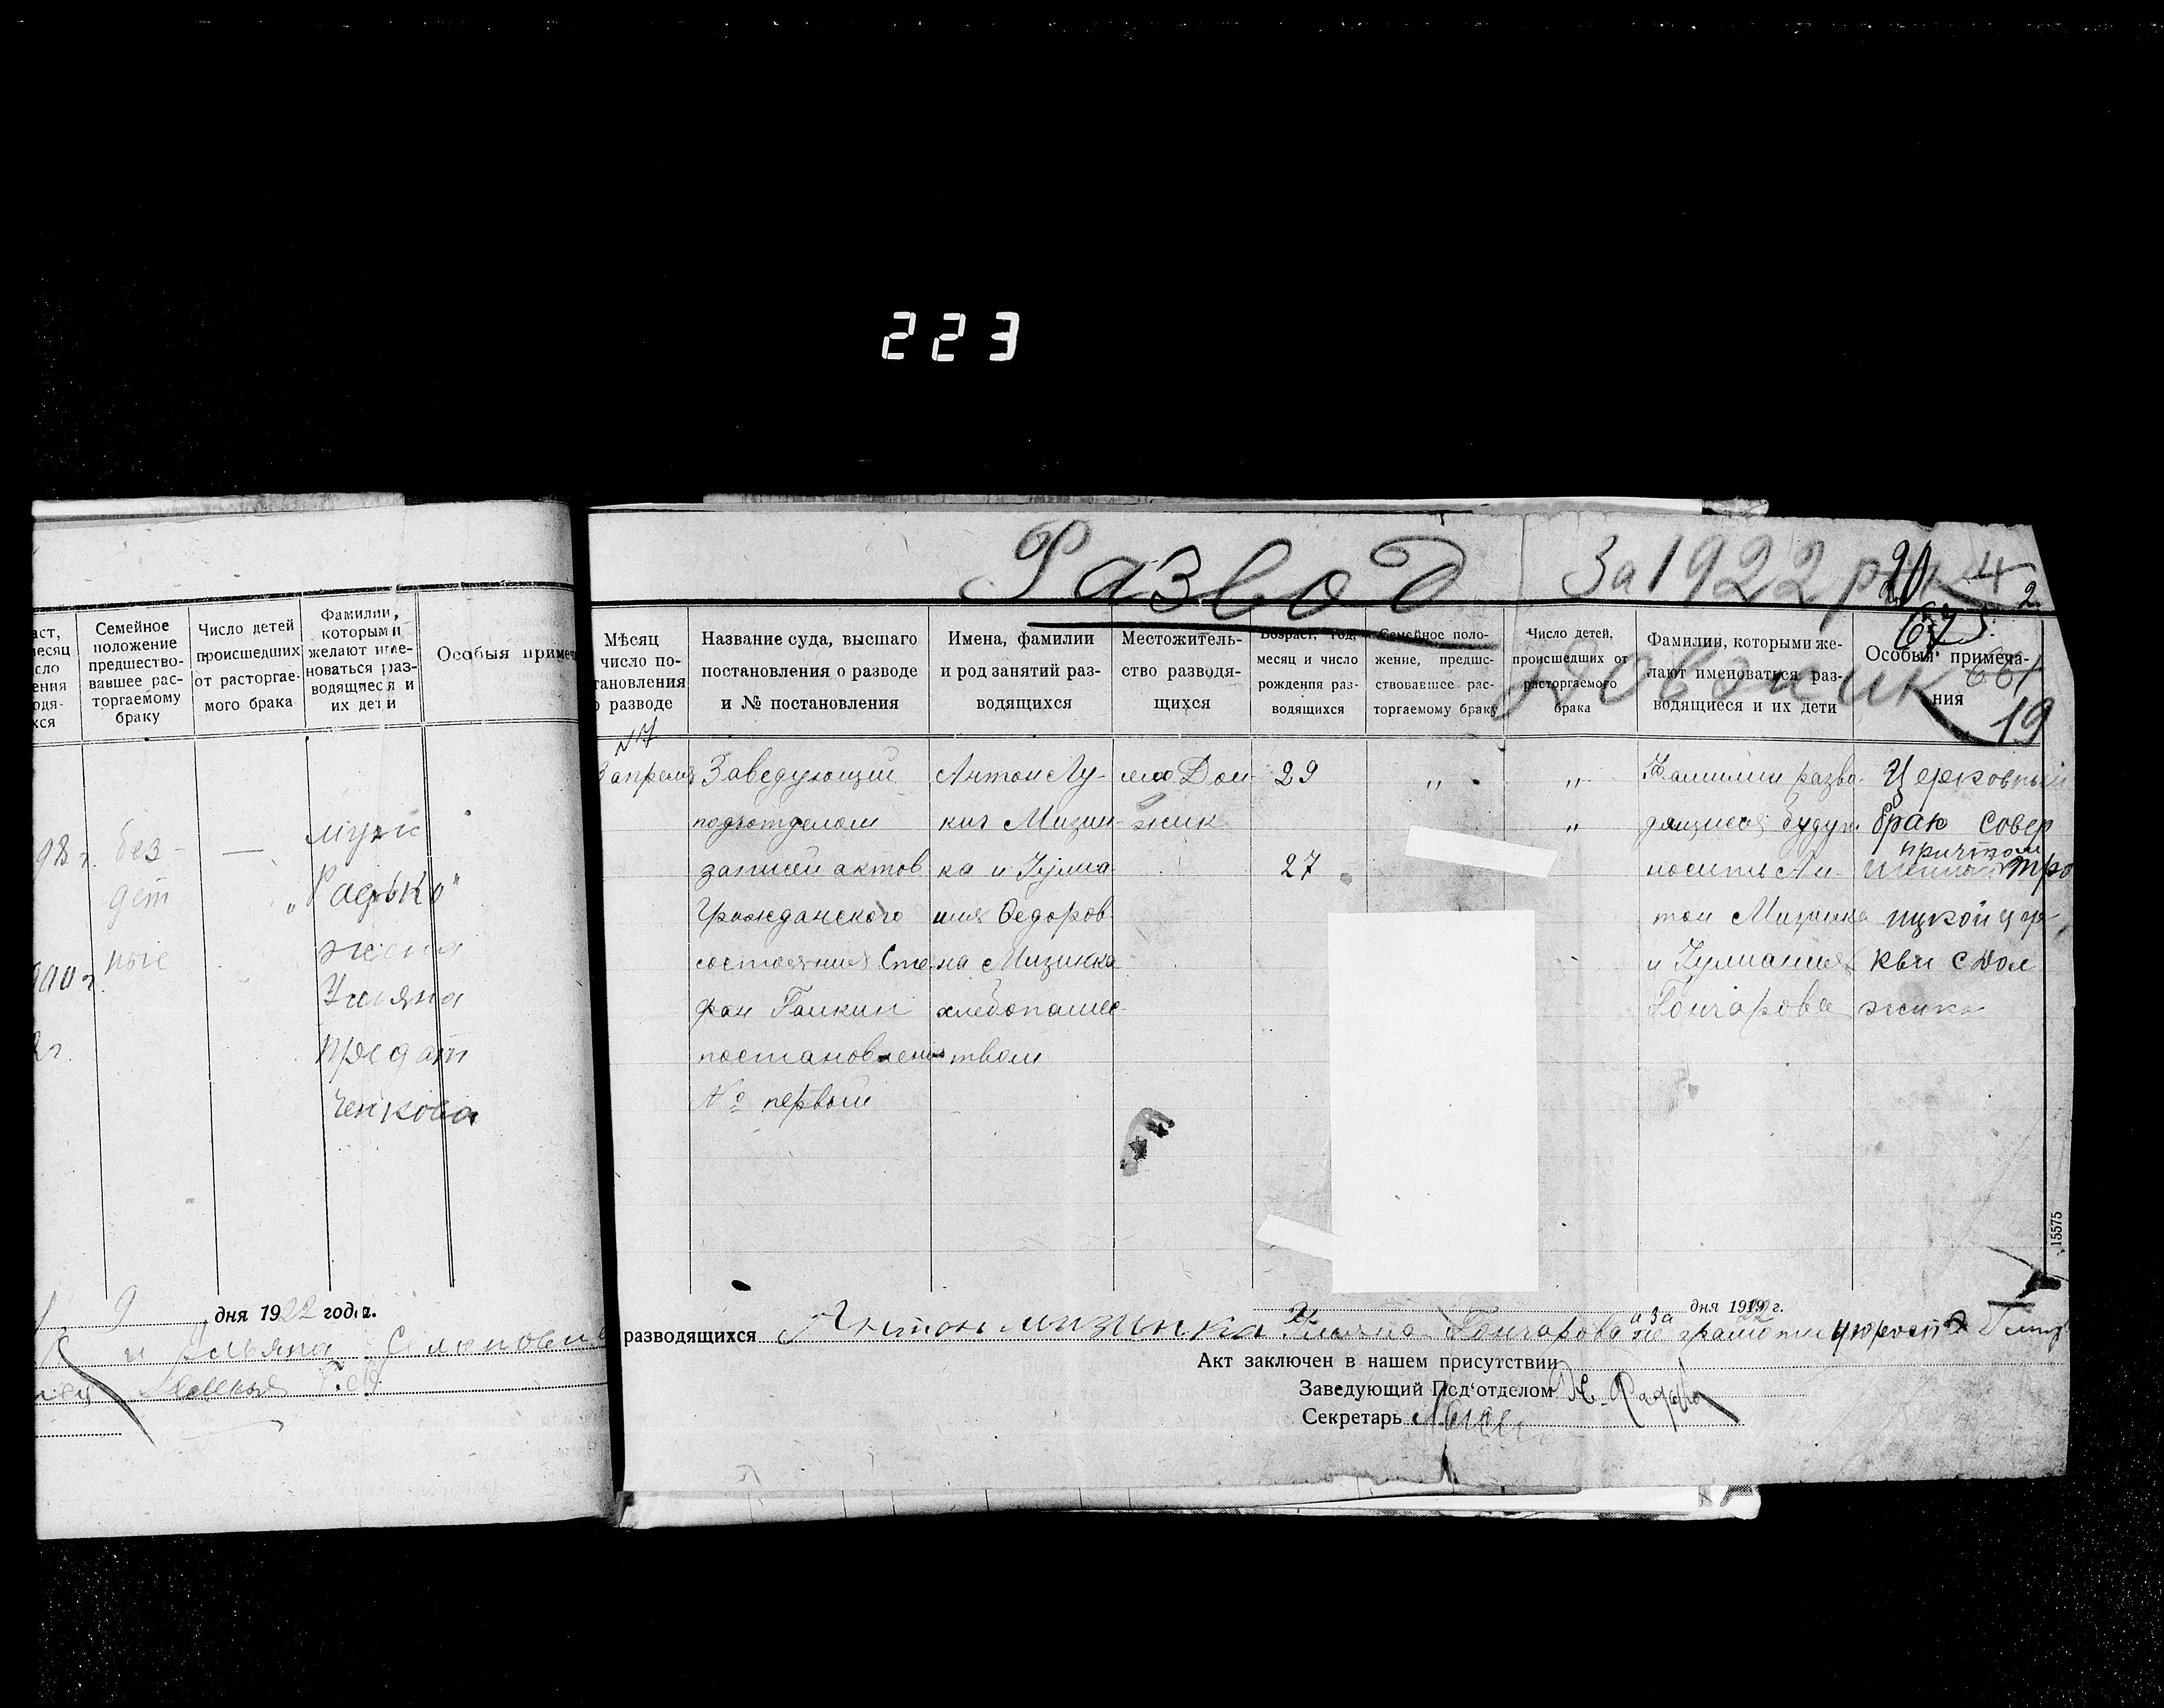 223
Развод За 1922 р
20
2
675
661
19
аст,
месяц
сло
ения
одя-
хся
Семейное
положение
предшество-
вавшее рас-
торгаемому
браку
Число детей
происшедших
от расторгае-
мого брака
Фамилии,
которыми
желают име-
новаться раз-
водящиеся и
их дети
Особыя примеч
98 г. без - — муж
дет „Радько"
ные жена
900 г. Ульяна
2 г.
ченкова
9 дня 1922 года.
и Ульяна
Мѣсяц
число по-
тановления
о разводе
Название суда, высшаго
постановления о разводе
и № постановления
Имена, фамилии
и род занятий раз-
водящихся
Местожитель-
ство разводя-
щихся
Возраст, год,
месяц и число
рождения раз-
водящихся
Семейное поло-
жение, предше-
ствовавшее рас-
торгаемому браку
Число детей,
происшедших от
расторгаемого
брака
Фамилии, которыми же-
лают именоваться раз-
водящиеся и их дети
Особыя примеча-
ния
№1
3 апреля
Заведующий
подъотделом
записей актов
Гражданского
состояния Сте-
фан Галкин
постановление
№ первый
Антон Лу-
кич Мизин-
ка и Иулиа-
ния Федоров-
на Мизинка
хлебопаше-
ством
село Дол-
жик
29
27
„
„
„
Фамилии разво-
дящиеся будут
носить Ан-
тон Мизинка
и Иулиания
Гончарова
Церковный
брак совер
причтом
шен Тро
ицкой цер
кви с Дол
жика
15575
дня 1919 г.
22
разводящихся Антон мизинка Улияна Гончарова а за
не грамотн
Акт заключен в нашем присутствии
Заведующий Под'отделом
Секретарь